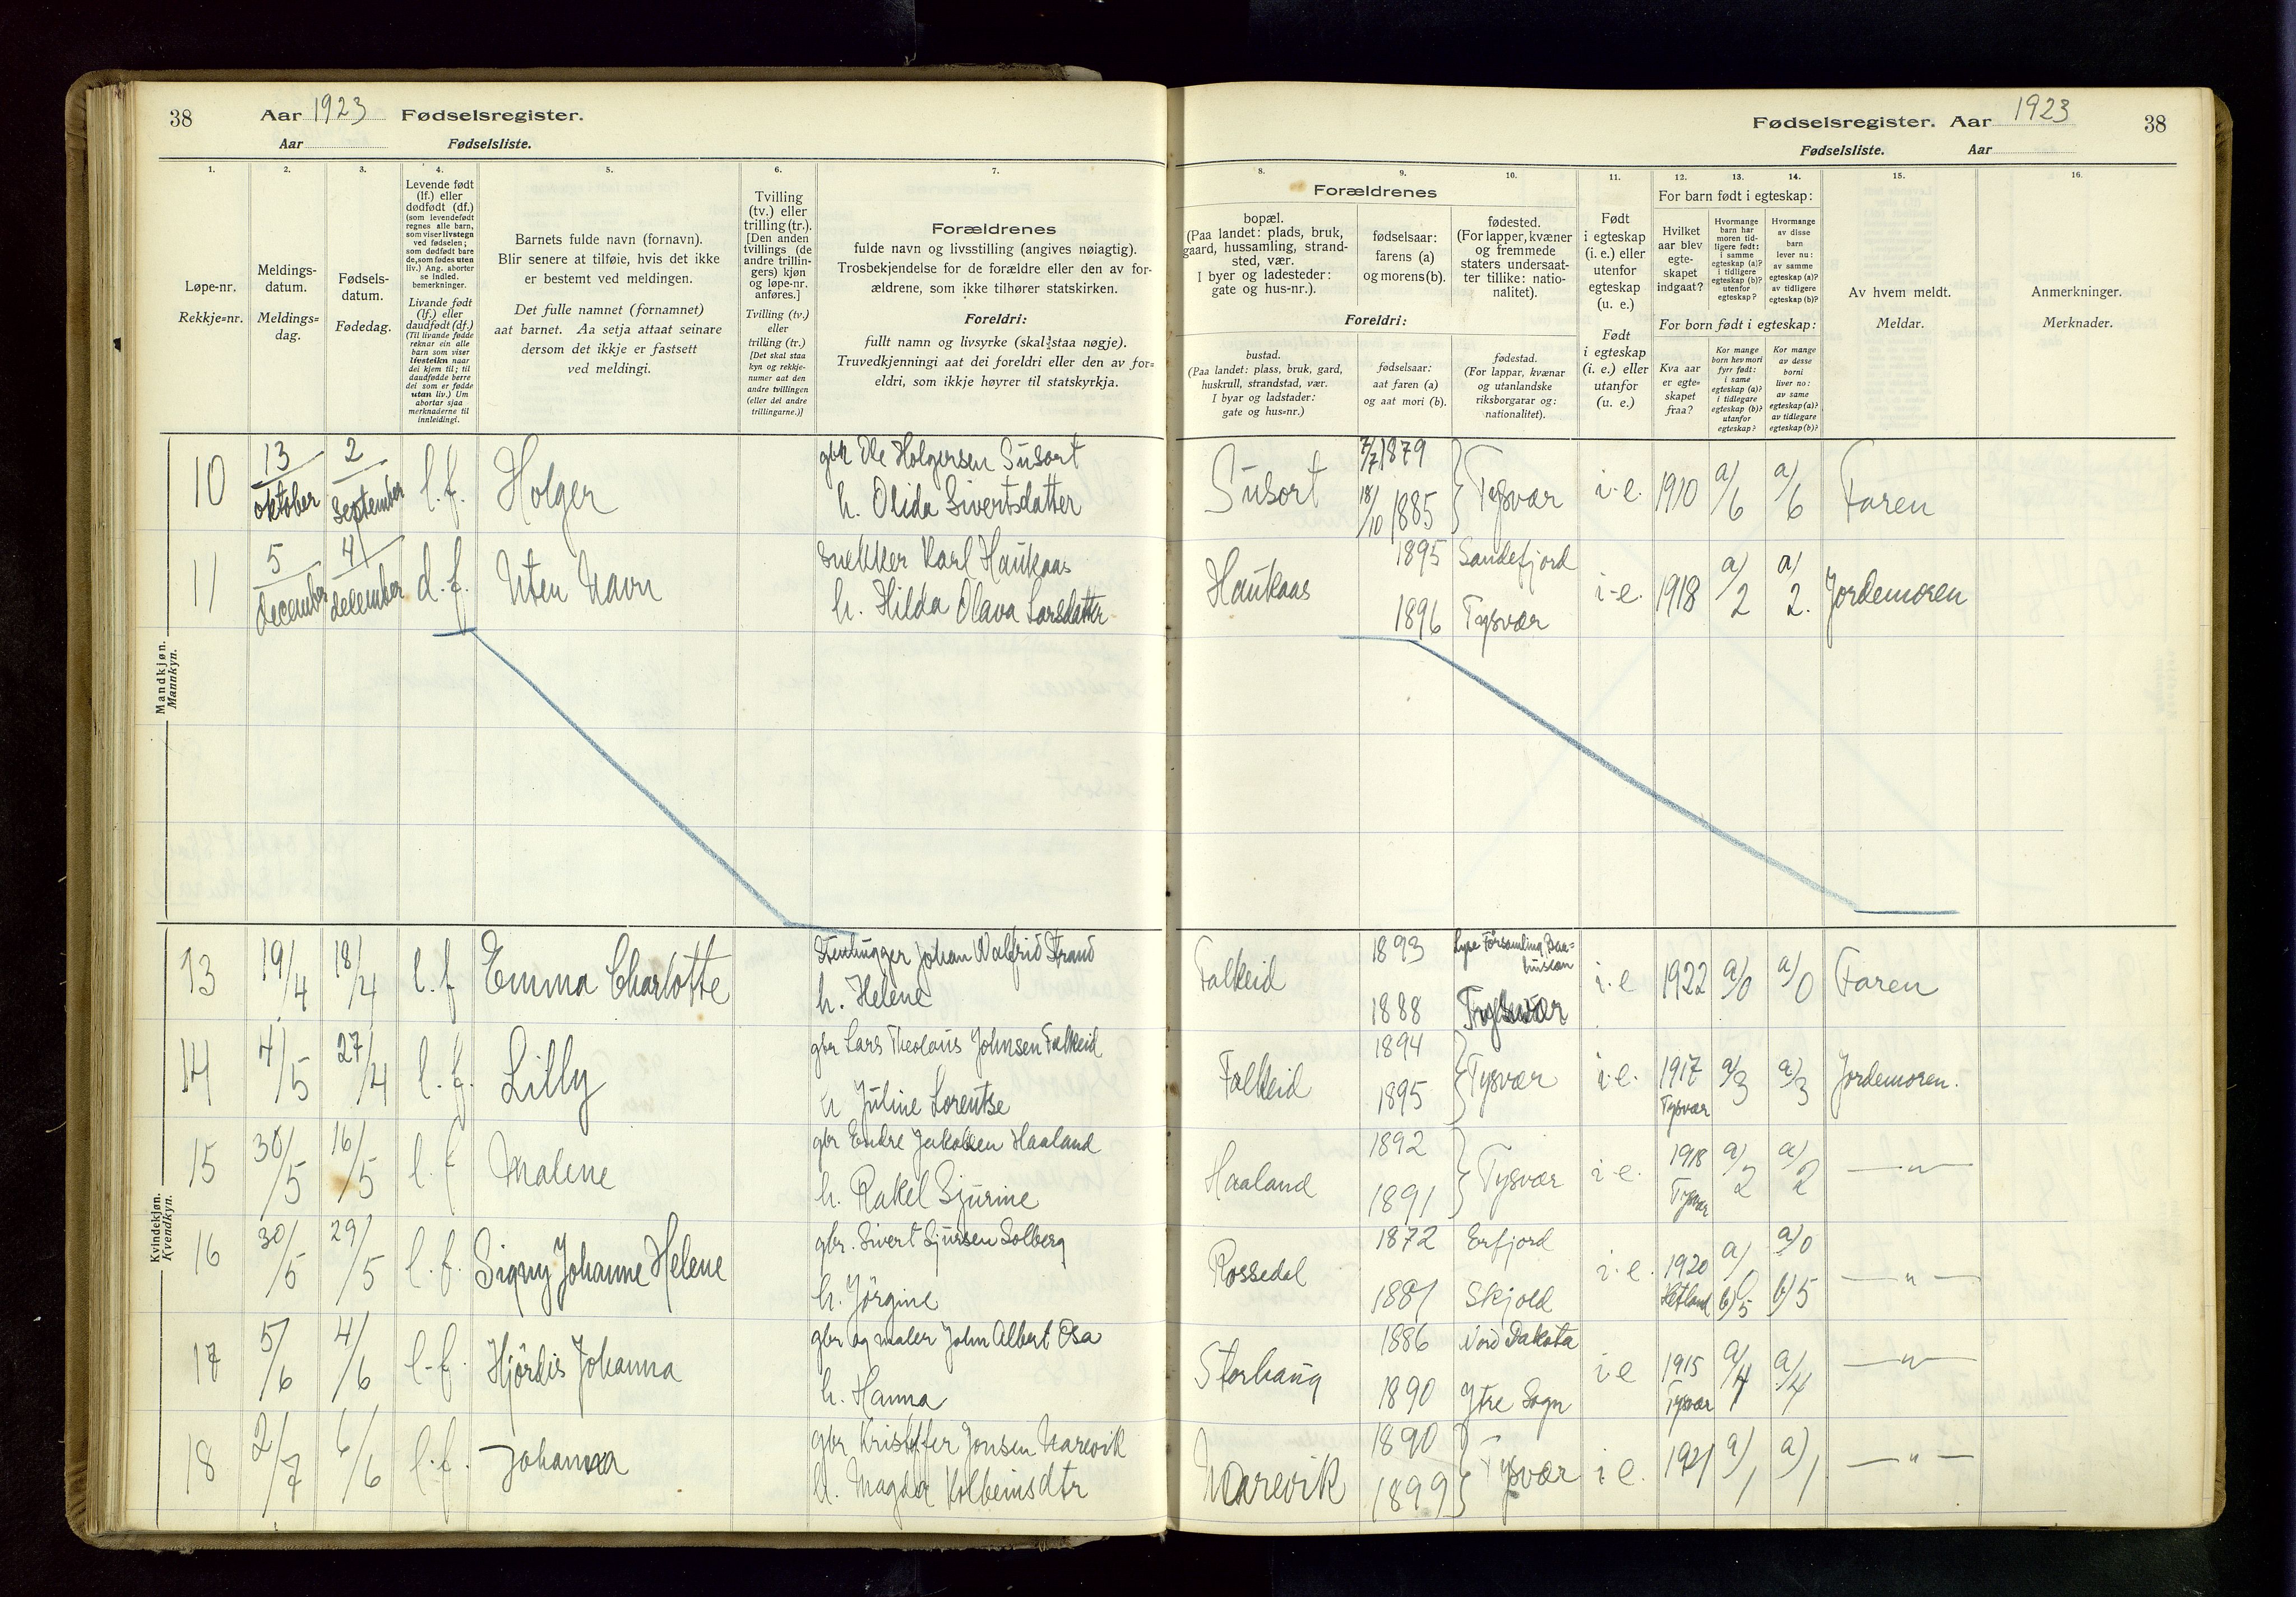 38 Aar 1923 Fødselsregister.
Aar Fødselsliste.
1. 2. 3. 4. 5. 6. 7.
Løpe-nr.
Rekkje=nr.
Meldings-
datum.
Meldings=
dag.
Fødsels-
datum.
Fødedag.
Levende født
(lf.) eller
dødfødt (df.)
(som levendefødt
regnes alle barn,
som viser livstegn
ved fødselen;
som dødfødt bare
de, som fødes uten
liv.) Ang. aborter
se indled.
bemerkninger.
Livande født
(lf.) eller
daudfødt (df.)
(Til livande fødde
reknar ein alle
barn som viser
livsteikn naar
dei kjem til; til
daudfødde berre
dei som er fødde
utan liv.) Um
abortar sjaa
merknaderne til
innleidingi.
Barnets fulde navn (fornavn).
Blir senere at tilføie, hvis det ikke
er bestemt ved meldingen.
Det fulle namnet (fornamnet)
aat barnet. Aa setja attaat seinare
dersom det ikkje er fastsett
ved meldingi.
Tvilling
(tv.) eller
trilling (tr.).
[Den anden
tvillings (de
andre trillin-
gers) kjøn
og løpe-nr.
anføres.]
Tvilling (tv.)
eller
trilling (tr.)
[Det skal staa
kyn og rekkje-
numer aat den
andre tvillingen
(eller dei andre
trillingarne.)]
Forældrenes
fulde navn og livsstilling (angives nøiagtig).
Trosbekjendelse for de forældre eller den av for-
ældrene, som ikke tilhører statskirken.
Foreldri:
fullt namn og livsyrke (skal staa nøgje).
Truvedkjenningi aat dei foreldri eller den av for=
eldri, som ikkje høyrer til statskyrkja.
Mandkjøn.
Mannkyn.
10 13/oktober 2/september l.f. Holger gbr Ole Holgersen Susort
h. Olida Sivertsdatter
11 5/december 4/december d.f. Uten Navn snekker Karl Haukaas
h. Hilda Olava Larsdatter
Kvindekjøn.
Kvendkyn.
13 19/4 18/4 l.f Emma Charlotte Stenhugger Johan Valfrid Strand
h. Helene
14 4/5 27/4 l.f. Lilly gbr Lars Theolaus Johnsen Falkeid
h Juline Lorentse
15 30/5 16/5 l.f Malene gbr Endre Jakobsen Haaland
h. Rakel Sjurine
16 30/5 29/5 l.f. Signy Johanne Helene gbr. Sivert Sjursen Solberg
h. Jörgine
17 5/6 4/6 l.f. Hjördis Johanna gbr og maler John Albert Osa
h. Hanna
18 2/7 6/6 l.f. Johanna gbr Kristoffer Jonsen Narevik
h. Magda Kolbeinsdtr
Fødselsregister. Aar 1923 38
Fødselsliste. Aar
8. 9. 10. 11. 12. 13. 14. 15. 16.
Forældrenes
bopæl.
(Paa landet: plads, bruk,
gaard, hussamling, strand-
sted, vær.
I byer og ladesteder:
gate og hus-nr.).
fødselsaar:
farens (a)
og morens (b).
fødested.
(For lapper, kvæner
og fremmede
staters undersaat-
ter tillike: natio-
nalitet).
Foreldri:
bustad.
(Paa landet: plass, bruk, gard,
huskrull, strandstad, vær.
I byar og ladstader:
gate og hus=nr.)
fødselsaar:
aat faren (a)
og aat mori (b).
fødestad.
(For lappar, kvænar
og utanlandske
riksborgarar og:
nationalitet).
Født
i egteskap
(i. e.) eller
utenfor
egteskap
(u. e.)
Født
i egteskap
(i. e.) eller
utanfor
(u. e.)
For barn født i egteskap:
Hvilket
aar blev
egte-
skapet
indgaat?
Hvormange
barn har
moren tid-
ligere født:
i samme
egteskap (a)?
i tidligere
egteskap (b)?
utenfor
egteskap?
Hvormange
av disse
barn
lever nu:
av samme
egteskap (a)?
av tidligere
egteskap (b)?
For born født i egteskap:
Kva aar
er egte=
skapet
fraa?
Kor mange
born hev mori
fyrr født:
i same
egteskap (a)?
i tidlegare
egteskap (b)?
utanfor
egteskap?
Kor mange
av desse
borni
liver no:
av same
egteskap (a)?
av tidlegare
egteskap (b)?
Av hvem meldt.
Meldar.
Anmerkninger.
Merknader.
Susort 7/7 1879 18/10 1885 Tysvær i.e. 1910 a/6 a/6 Faren
Haukaas 1895 Sandefjord
1896 Tysvær i-e. 1918 a/2 a/2. Jordemoren
Falkeid 1893 Lyse Församling, Baa=
huslän
1888 Tysvær i.e 1922 a/0 a/0 Faren
Falkeid 1894 1895 Tysvær i.e. 1917 Tysvær a/3 a/3 Jordemoren.
Haaland 1892 1891 Tysvær i.e. 1918 Tysvær a/2 a/2 —"—
Rossedal 1872 Erfjord
1881 Skjold i.e. 1920 a) b)5 a)0 b)5 —"—
Storhaug 1886 Nord Dakota
1890 Ytre Sogn i e 1915 Tysvær a/4 a/4 —"—
Narevik 1890 1899 Tysvær i e. 1921 a)1 a)1 —"—